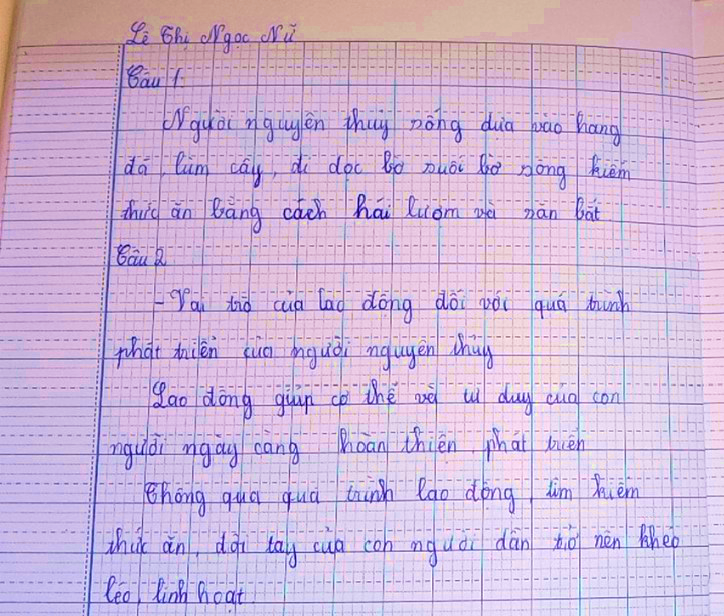 Lê Thị Ngọc Nữ
Câu 1.
Người nguyên thủy sống dựa vào hang
đá, lùm cây, đi dọc bờ suối bờ sông kiếm
thức ăn bằng cách hái lượm và săn bắt
Câu 2
- Vai trò của lao động đối với quá trình
phát triển của người nguyên thủy
Lao động giúp cơ thể và tư duy của con
người ngày càng hoàn thiện, phát triển
Thông qua quá trình lao động, tìm kiếm
thức ăn, đôi tay của con người dần trở nên khéo
léo, linh hoạt